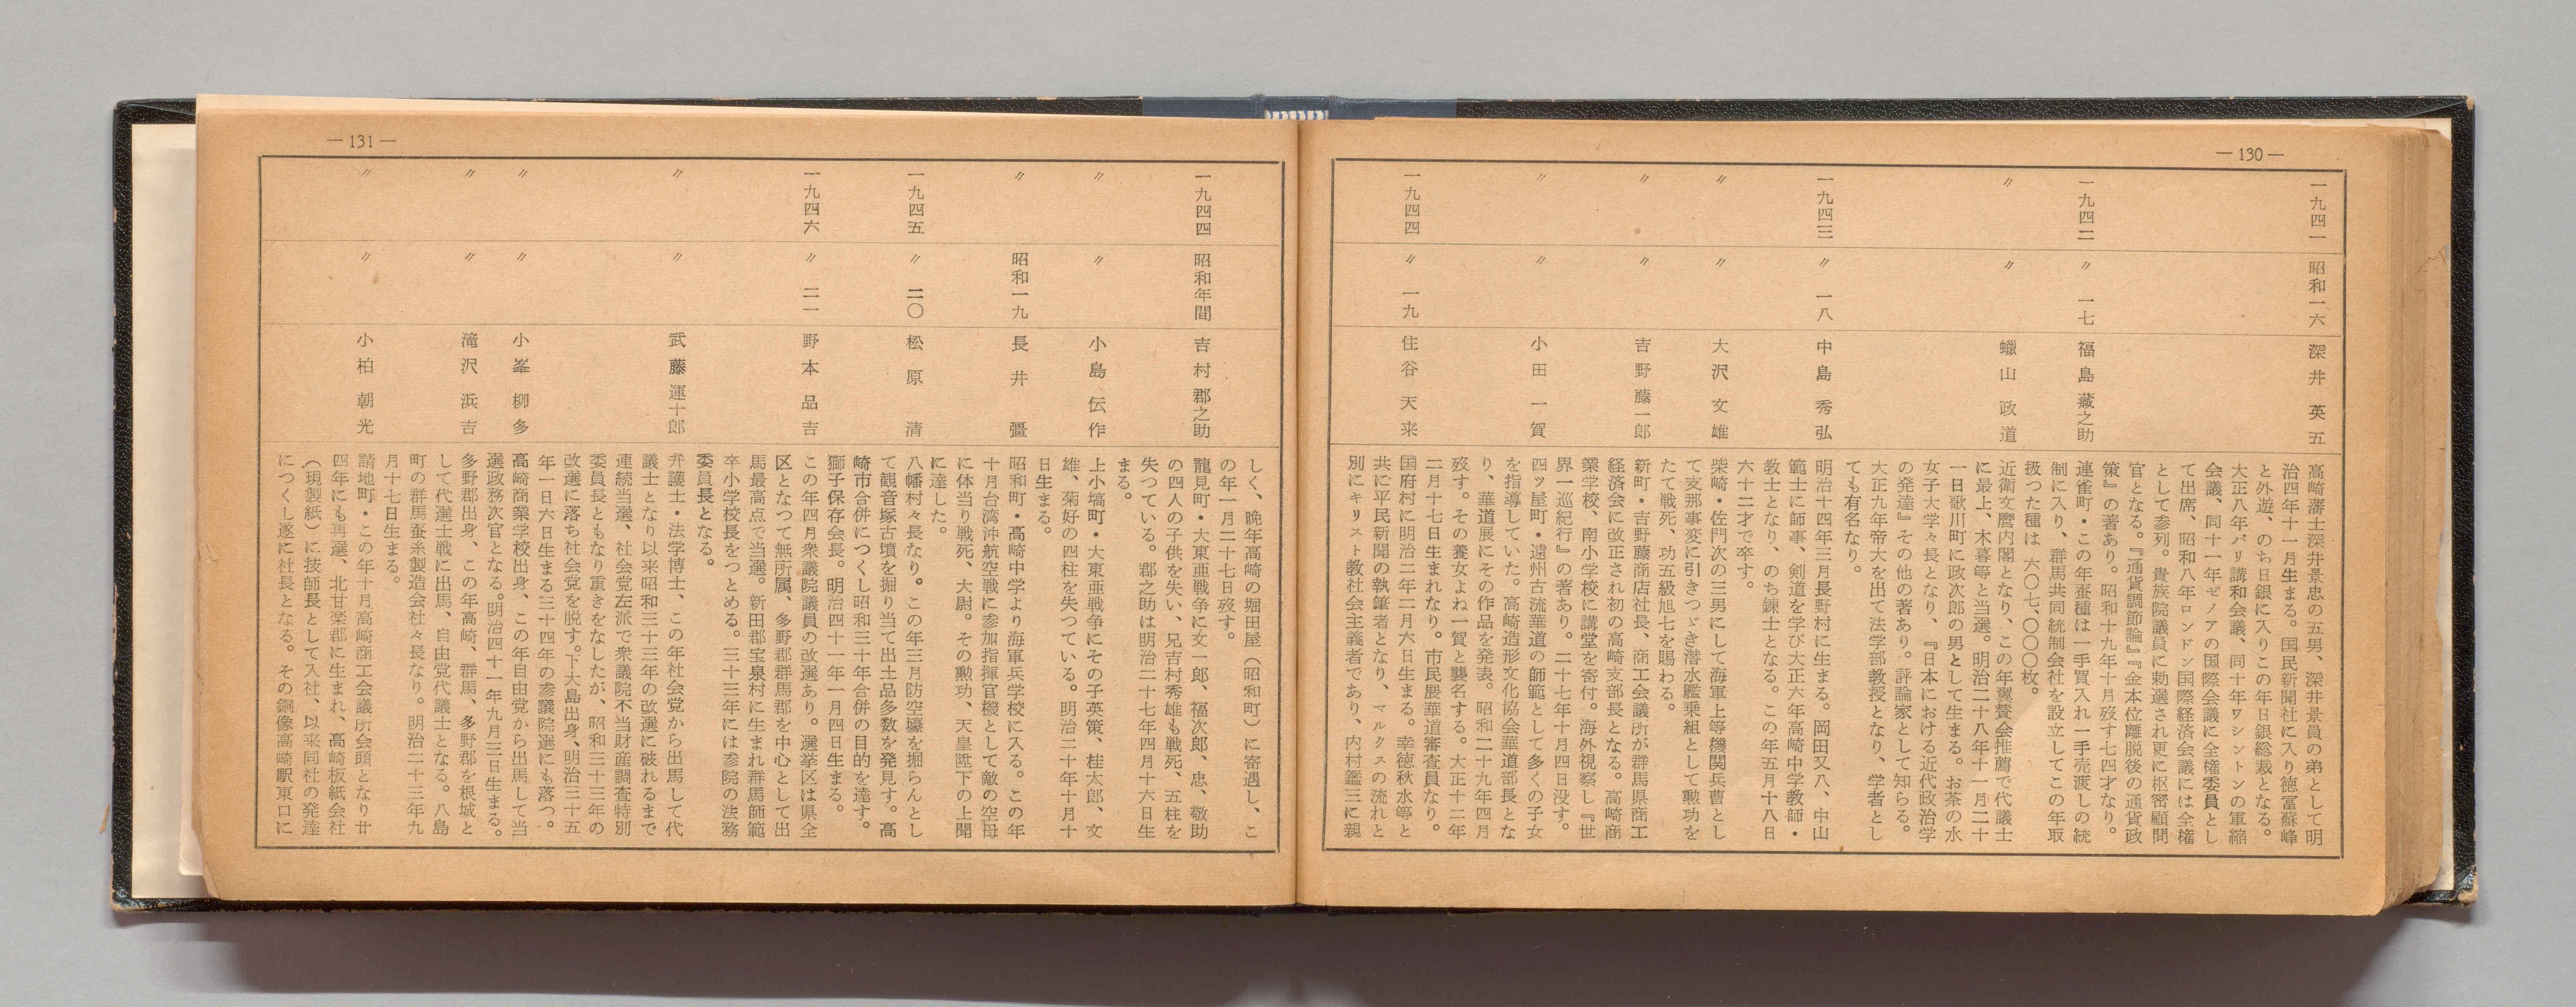 ― 130 ―
一九四一 昭和一六 深井英五
高崎藩士深井景忠の五男、深井景員の弟として明
治四年十一月生まる。国民新聞社に入り徳富蘇峰
と外遊、のち日銀に入りこの年日銀総裁となる。
大正八年パリ講和会議、同十年ワシントンの軍縮
会議、同十一年ゼノアの国際会議に全権委員とし
て出席、昭和八年ロンドン国際経済会議には全権
として参列。貴族院議員に勅選され更に枢密顧問
官となる。『通貨調節論』『金本位離脱後の通貨政
策』の著あり。昭和十九年十月歿す七四才なり。
一九四二 〃 一七 福島藏之助
連雀町・この年蚕種は一手買入れ一手売渡しの統
制に入り、群馬共同統制会社を設立してこの年取
扱つた種は 六〇七、〇〇〇枚。
〃 〃 蠟山政道
近衛文麿内閣となり、この年翼賛会推薦で代議士
に最上、木暮等と当選。明治二十八年十一月二十
一日歌川町に政次郎の男として生まる。お茶の水
女子大学々長となり、『日本における近代政治学
の発達』その他の著あり。評論家として知らる。
大正九年帝大を出て法学部教授となり、学者とし
ても有名なり。
一九四三 〃 一八 中島秀弘
明治十四年三月長野村に生まる。岡田又八、中山
範士に師事、剣道を学び大正六年高崎中学教師・
教士となり、のち錬士となる。この年五月十八日
六十二才で卒す。
〃 〃 大沢文雄
柴崎・佐門次の三男にして海軍上等機関兵曹とし
て支那事変に引きつゞき潜水艦乗組として勲功を
たて戦死、功五級旭七を賜わる。
〃 〃 吉野藤一郎
新町・吉野藤商店社長、商工会議所が群馬県商工
経済会に改正され初の高崎支部長となる。高崎商
業学校、南小学校に講堂を寄付。海外視察し『世
界一巡紀行』の著あり。二十七年十月四日没す。
〃 〃 小田一賀
四ッ屋町・遠州古流華道の師範として多くの子女
を指導していた。高崎造形文化協会華道部長とな
り、華道展にその作品を発表。昭和二十九年四月
歿す。その養女よね一賀と襲名する。大正十二年
二月十七日生まれなり。市民展華道審査員なり。
一九四四 〃 一九 住谷天来
国府村に明治二年二月六日生まる。幸徳秋水等と
共に平民新聞の執筆者となり、マルクスの流れと
別にキリスト教社会主義者であり、内村鑑三に親
― 131 ―
しく、晩年高崎の堀田屋（昭和町）に寄遇し、こ
の年一月二十七日歿す。
一九四四 昭和年間 吉村郡之助
龍見町・大東亜戦争に文一郎、福次郎、忠、敬助
の四人の子供を失い、兄吉村秀雄も戦死、五柱を
失つている。郡之助は明治二十七年四月十六日生
まる。
〃 〃 小島伝作
上小塙町・大東亜戦争にその子英策、桂太郎、文
雄、菊好の四柱を失つている。明治二十年十月十
日生まる。
〃 昭和一九 長井彊
昭和町・高崎中学より海軍兵学校に入る。この年
十月台湾沖航空戦に参加指揮官機として敵の空母
に体当り戦死、大尉。その勲功、天皇陛下の上聞
に達した。
一九四五 〃 二〇 松原清
八幡村々長なり。この年三月防空壕を掘らんとし
て観音塚古墳を掘り当て出土品多数を発見す。高
崎市合併につくし昭和三十年合併の目的を達す。
獅子保存会長。明治四十一年一月四日生まる。
一九四六 〃 二一 野本品吉
この年四月衆議院議員の改選あり。選挙区は県全
区となつて無所属、多野郡群馬郡を中心として出
馬最高点で当選。新田郡宝泉村に生まれ群馬師範
卒小学校長をつとめる。三十三年には参院の法務
委員長となる。
〃 〃 武藤運十郎
弁護士・法学博士、この年社会党から出馬して代
議士となり以来昭和三十三年の改選に破れるまで
連続当選、社会党左派で衆議院不当財産調査特別
委員長ともなり重きをなしたが、昭和三十三年の
改選に落ち社会党を脱す。下大島出身、明治三十五
年一日六日生まる三十四年の参議院選にも落つ。
〃 〃 小峯柳多
高崎商業学校出身、この年自由党から出馬して当
選政務次官となる。明治四十一年九月三日生まる。
〃 〃 滝沢浜吉
多野郡出身、この年高崎、群馬、多野郡を根城と
して代選士戦に出馬、自由党代議士となる。八島
町の群馬蚕糸製造会社々長なり。明治二十三年九
月十七日生まる。
〃 〃 小柏朝光
請地町・この年十月高崎商工会議所会頭となり廿
四年にも再選、北甘楽郡に生まれ、高崎板紙会社
（現製紙）に技師長として入社、以来同社の発達
につくし遂に社長となる。その銅像高崎駅東口に